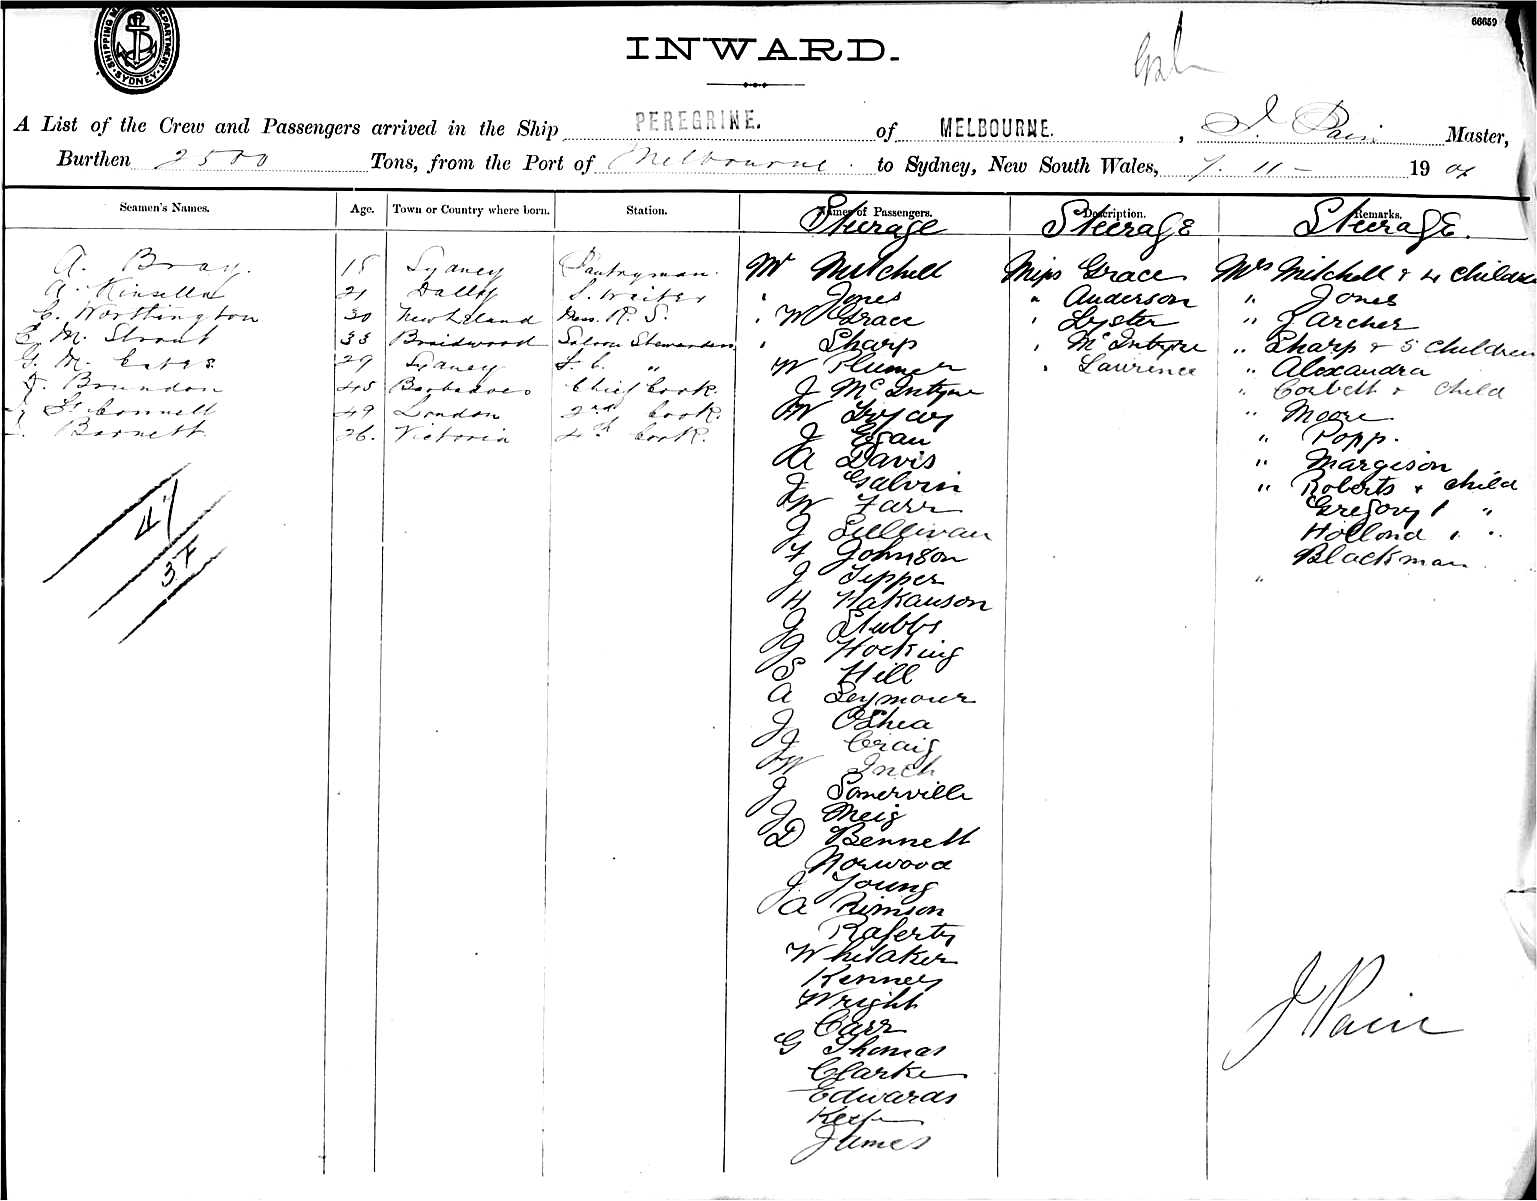 66659
SHIPPING MASTER'S DEPARTMENT SYDNEY
INWARD.
A List of the Crew and Passengers arrived in the Ship PEREGRINE. of MELBOURNE. , J. Pain Master,
Burthen 2500 Tons, from the Port of Melbourne. to Sydney, New South Wales, 7. 11 - 1904
Seamen's Names. Age. Town or Country where born. Station. Names of Passengers. Description. Remarks.
Steerage Steerage Steerage.
A. Bray. 15 Sydney Pantryman. Mr Mitchell Miss Grace Mrs Mitchell & 4 children
A. Kinsella 21 S. Waiter " Jones " Anderson " Jones
C. Worthington 30 New Zealand Mess. R. S. " W Grace " Lyster " J Archer
E. M. Strout 33 Braidwood Saloon Stewardess " Sharp " McIntyre " Sharp & 5 children
G. M. Estes 29 Sydney F. C. " W Plumer " Lawrence " Alexandra
J. Brandon 45 Barbadoes Chief Cook. J McIntyre " Corbett & child
St Connell 49 London 2nd Cook. W " Moore
Barnett 26. Victoria 4th Cook. J Egan " Popp.
A Davis " Margison
J Galvin " Roberts & child
W Farr Gregory 1 "
J Sullivan Holland 1 "
F Johnson Blackman
J Tepper "
H Hakanson
J Stubbs
J Hocking
S Hill
A Seymour
J OShea
J Craig
W Inch
J Somerville
J Meig
D Bennett
Norwood
J. Young
A Rimson
Raferty
Whitaker
Kenney
Wright
Carr
G Thomas
Clarke
Edwards
Keefe
James
41
37
J Pain